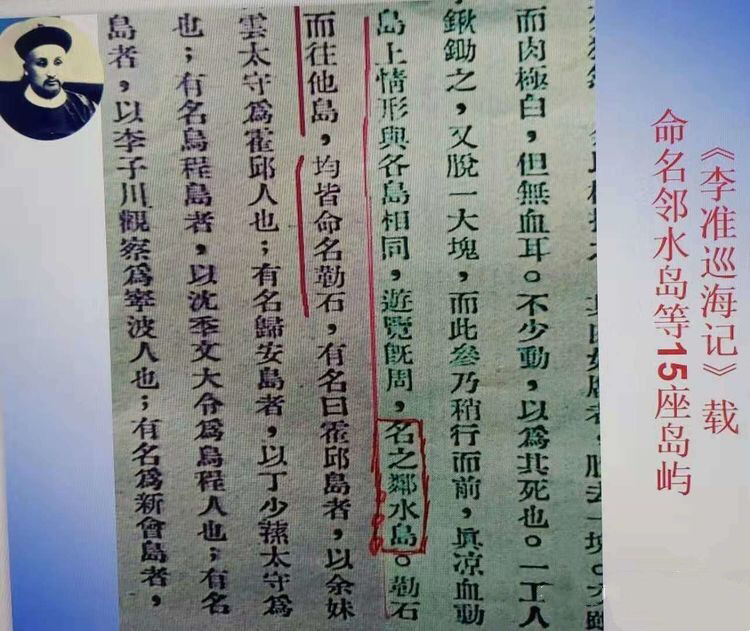 《李准巡海记》载
命名邻水岛等15座岛屿
而肉極白，但無血耳。不少動，以爲其死也。一工人
鍬鋤之，又脫一大塊，而此參乃稍行而前，眞凉血動
島上情形與各島相同，遊覽旣周，名之鄰水島。勒石
而往他島，均皆命名勒石，有名曰霍邱島者，以余妹
雲太守爲霍邱人也；有名歸安島者，以丁少蓀太守爲
也；有名烏程島者，以沈季文大令爲烏程人也；有名
島者，以李子川觀察爲寧波人也；有名爲新會島者，